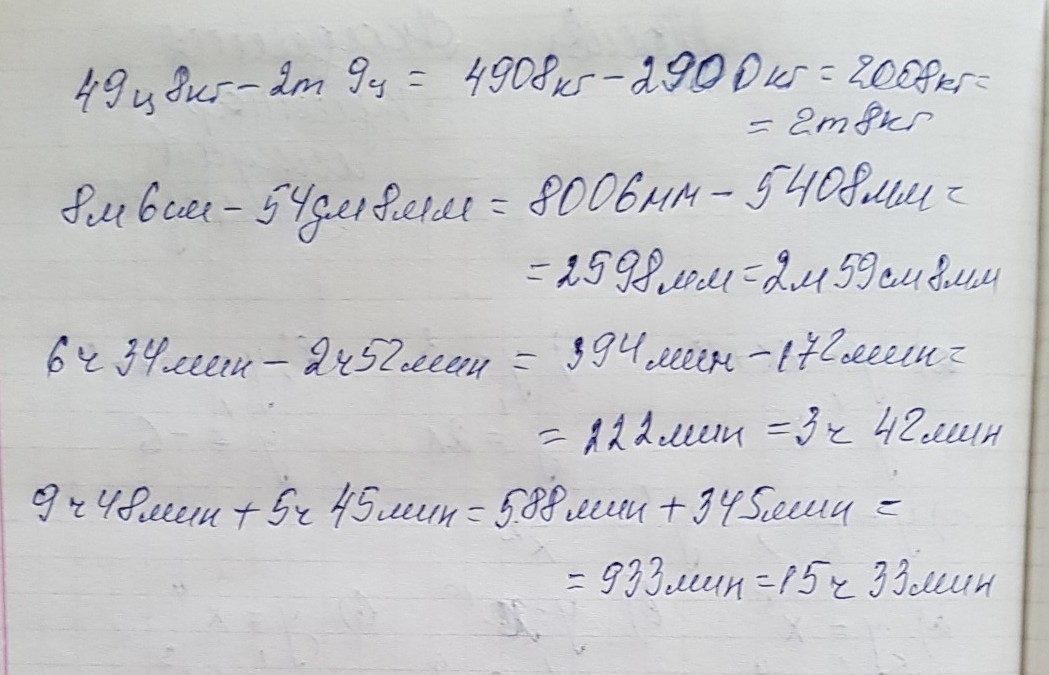 49ц 8кг - 2т 9ц = 4908кг - 2900кг = 2008кг =
= 2т 8кг
8м 6см - 54дм 8мм = 8006мм - 5408мм =
= 2598мм = 2м 59см 8мм
6ч 34мин - 2ч 52мин = 394мин - 172мин =
= 222мин = 3ч 42мин
9ч 48мин + 5ч 45мин = 588мин + 345мин =
= 933мин = 15ч 33мин